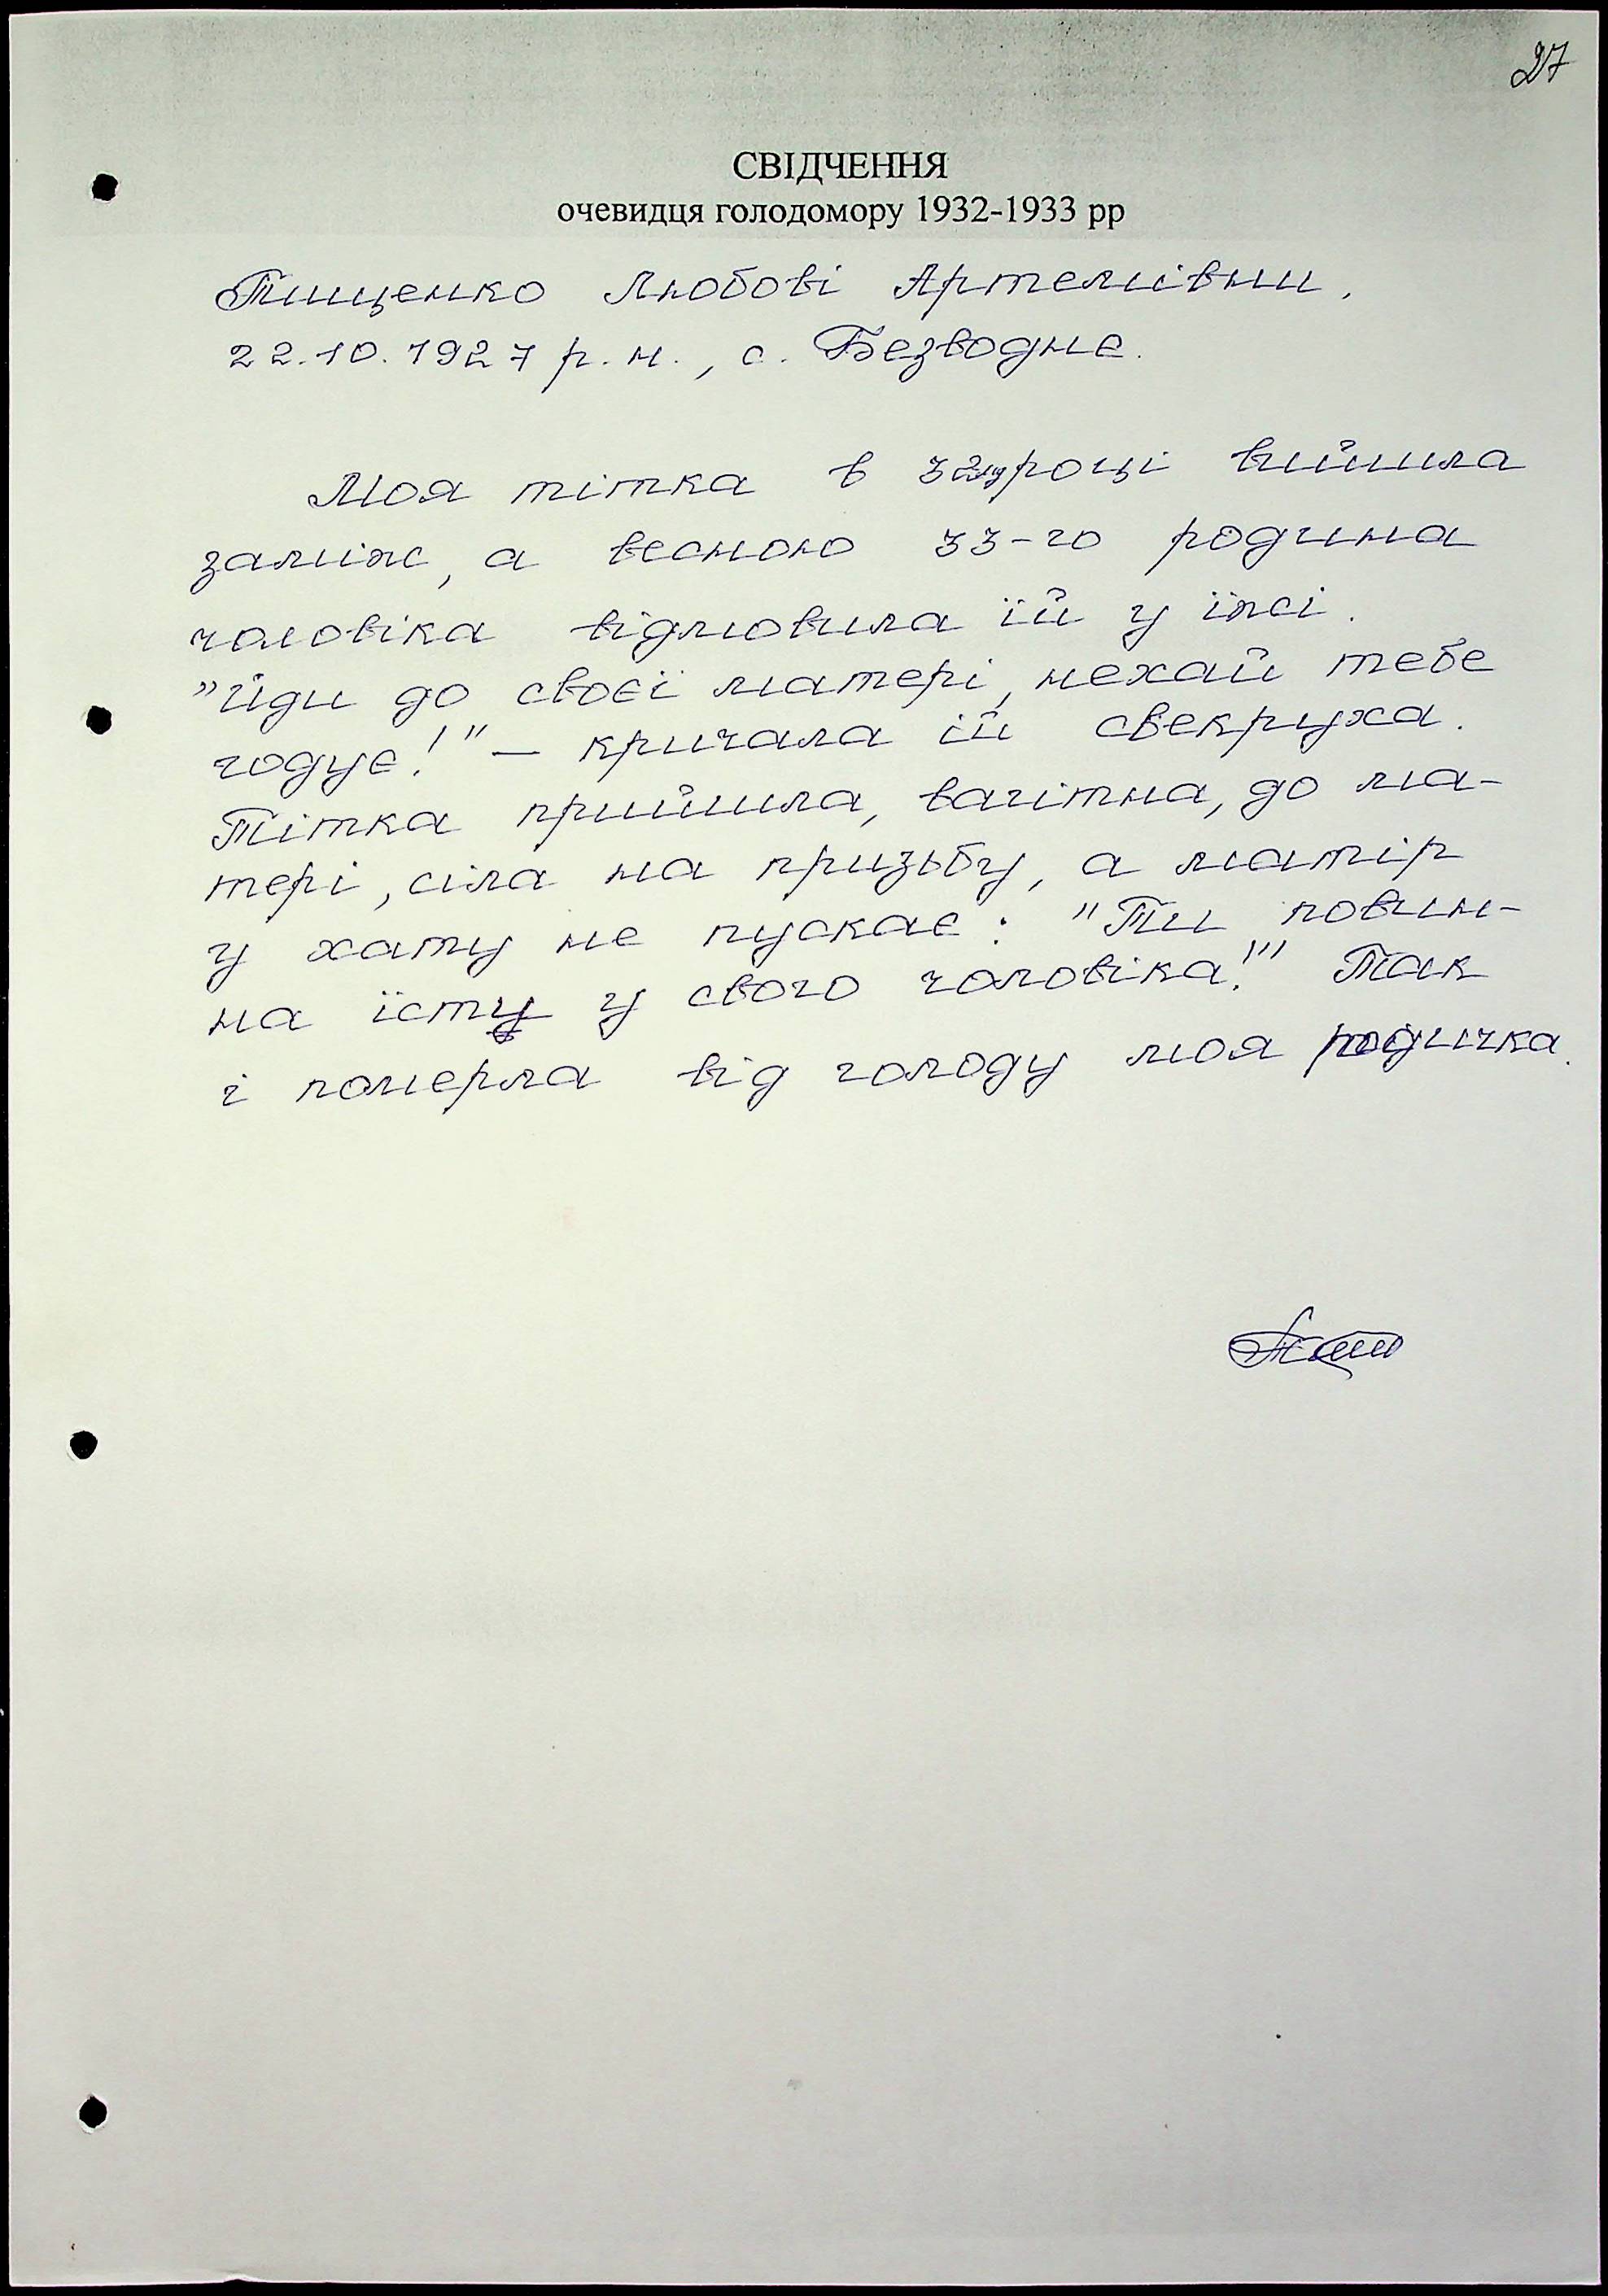 27
СВІДЧЕННЯ
очевидця голодомору 1932-1933 рр
Тищенко Любові Артемівни,
22.10.1927 р.н., с. Безводне.
Моя тітка в 32му році вийшла
заміж, а весною 33-го родина
чоловіка відмовила їй у їжі.
"Йди до своєї матері, нехай тебе
годує!" – кричала їй свекруха.
Тітка прийшла, вагітна, до ма-
тері, сіла на призьбу, а матір
у хату не пускає: "Ти повин-
на їсти у свого чоловіка!" Так
і померла від голоду моя родичка.